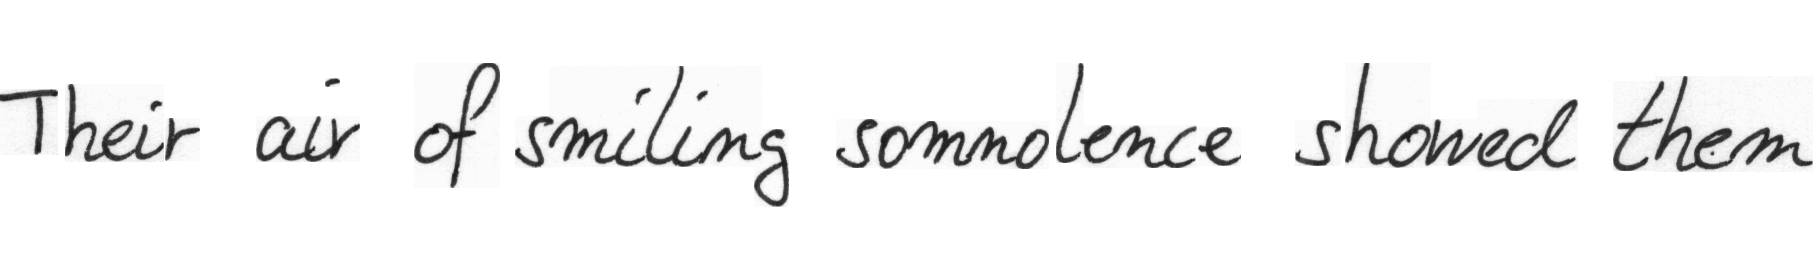 Their air of smiling somnolence showed them